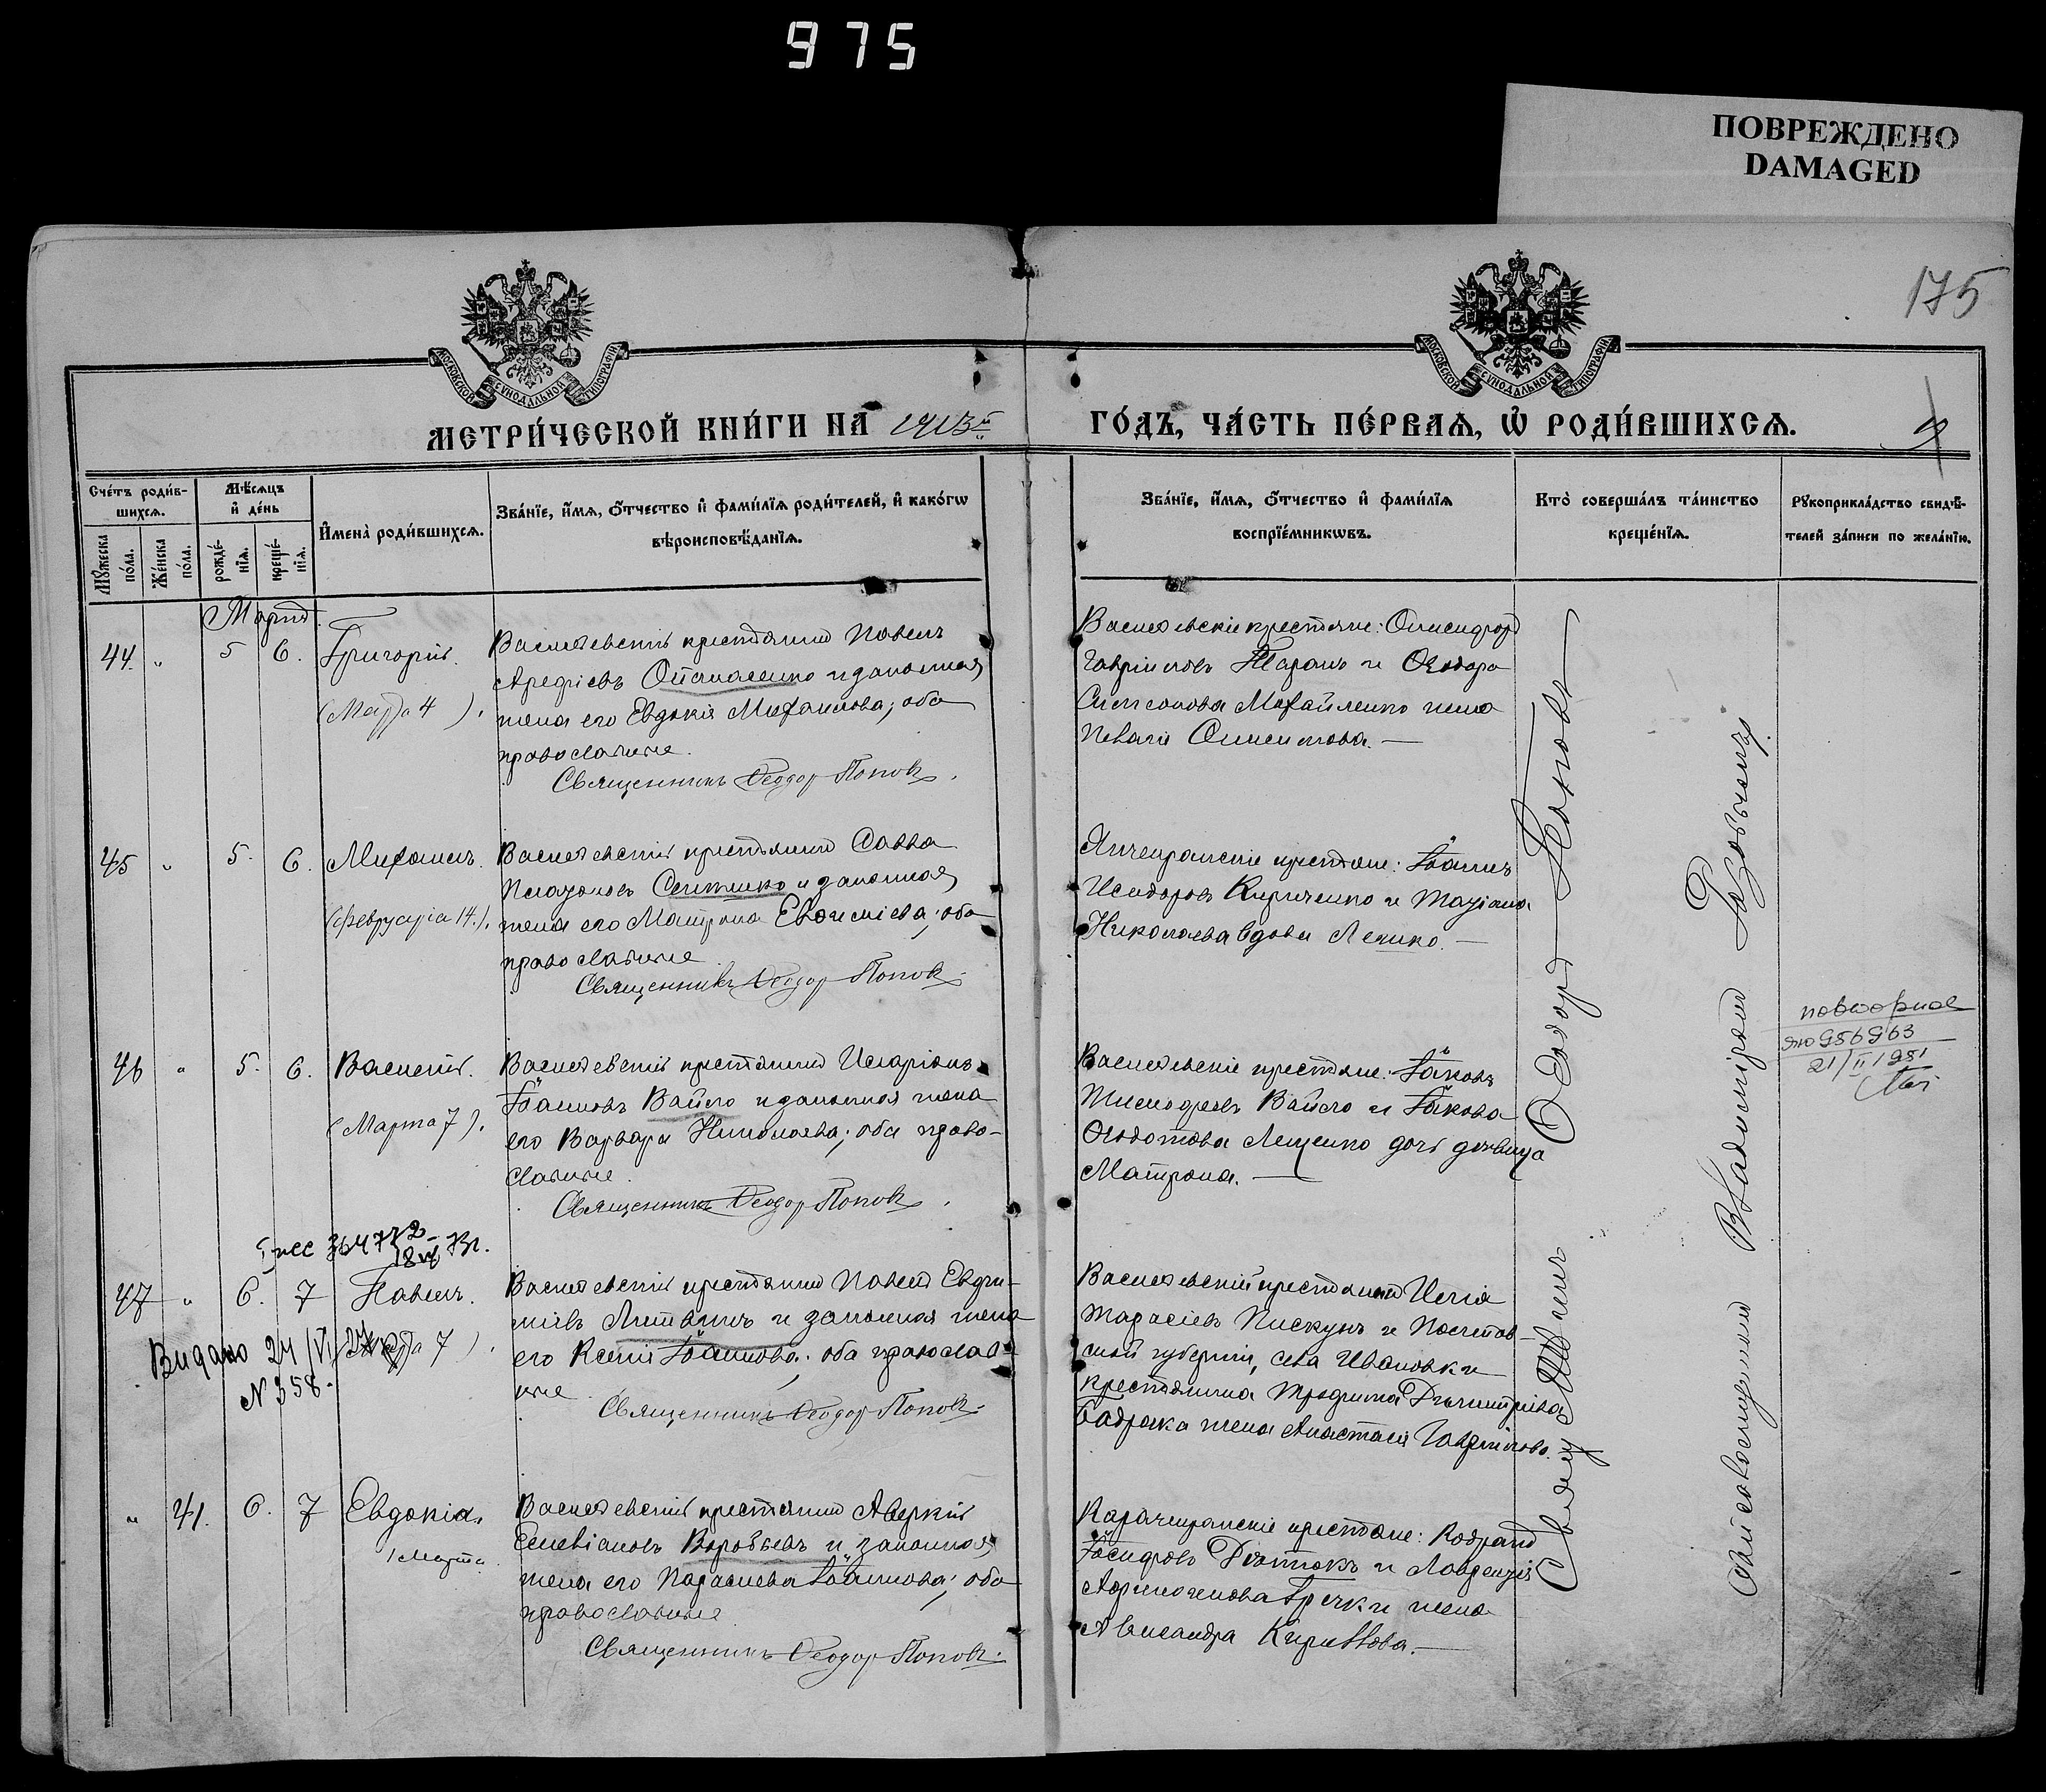 975
ПОВРЕЖДЕНО
DAMAGED
175
МОСКОВСКОЙ СѴНОДАЛЬНОЙ ТИПОГРАФІИ
МОСКОВСКОЙ СѴНОДАЛЬНОЙ ТИПОГРАФІИ
МЕТРИ́ЧЕСКОЙ КНИ́ГИ НА 1913й
ГО́ДЪ, ЧА́СТЬ ПЕ́РВАѦ, Ѡ РОДИ́ВШИХСѦ.
Сче́тъ роди́в-
шихсѧ.
Мꙋ́жеска
по́ла.
Же́нска
по́ла.
Мѣ́сѧцъ
и де́нь
рожде́-
нїѧ.
креще́-
нїѧ.
Имена̀ роди́вшихсѧ.
Зва́нїе, и́мѧ, ѻ́тчество и фами́лїѧ роди́телей, и како́гѡ
вѣроисповѣ́данїѧ.
Зва́нїе, и́мѧ, ѻ́тчество и фами́лїѧ
воспрїе́мникѡвъ.
Кто̀ соверша́лъ та́инство
креще́нїѧ.
Рꙋкоприкла́дство свидѣ́-
телей за́писи по жела́нїю.
Мартъ.
44. " 5 6. Григорій.
(Марта 4).
Василевскій крестьянинъ Павелъ
Арефіевъ Опанасенко и законная
жена его Евдокія Михаилова; оба
православные.
Священникъ Ѳеодор Попов.
Василевскіе крестьяне: Онисифоръ
Гавріиловъ Таранъ и Ѳеодора
Симеонова Михайленко жена
Пелагія Онисимова.—
45 " 5. 6. Михаилъ.
(Февруарія 14.).
Василевскій крестьянинъ Савва
Платоновъ Ситенко и законная
жена его Матрона Евѳиміева; оба
православные.
Священникъ Ѳеодор Попов.
Янчекракскіе крестьяне: Іоаннъ
Исидоровъ Кириченко и Татіана
Николаева вдова Лепико.—
46 " 5. 6. Василій.
(Марта 7).
Василевскій крестьянинъ Иларіонъ
Іоанновъ Вайло и законная жена
его Варвара Николаева; оба право-
славные.
Священникъ Ѳеодор Попов.
Василевскіе крестьяне: Іаковъ
Тимоѳеевъ Вайло и Іакова
Ѳеодотова Лещенко дочь дѣвица
Матрона.—
повторное
956963
21/II 1951
47 " 6. 7 Павелъ.
(Марта 7).
Видано 24/VI
N 358.
Василевскій крестьянинъ Павелъ Евѳи-
міевъ Литвинъ и законная жена
его Ксенія Іоаннова; оба православ-
ные.
Священникъ Ѳеодор Попов.
Василевскій крестьянинъ Илія
Тарасіевъ Пискунъ и Полтав-
ской губерніи, села Ивановки
крестьянина Трофима Димитріева
Бабрака жена Анастасія Гавріилова.
" 41. 6. 7 Евдокія.
(Марта
Василевскій крестьянинъ Аверкій
Селевіановъ Воробьевъ и законная
жена его Параскева Іоаннова; оба
православные
Священникъ Ѳеодор Попов.
Карачекракскіе крестьяне: Кодратъ
Іосифовъ Дзятокъ и Лаврентія
Аѳиногенова Гречки жена
Александра Кириллова.—
Священникъ Ѳеодоръ Поповъ
Владиміръ